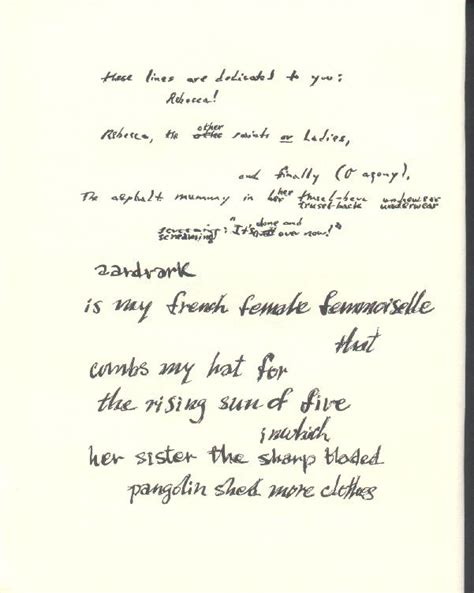 these lines are dedicated to you:
Rebecca!
Rebecca, the other saints or Ladies,
and finally (O agony),
The asphalt mummy in her
underwear
screaming: "It's done and over now!"
aardvark
is my french female femmoiselle
that
combs my hat for
the rising sun of five
in which
her sister the sharp bladed
pangolin shed more clothes